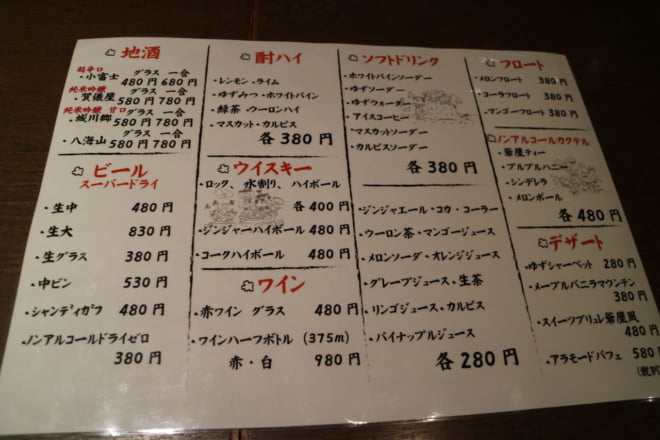 地酒
超辛口 グラス 一合
・小富士 480円 680円
純米吟醸 グラス 一合
・賀儀屋 580円 780円
純米吟醸 甘口 グラス 一合
・城川郷 580円 780円
グラス 一合
・八海山 580円 780円
ビール
スーパードライ
・生中 480円
・生大 830円
・生グラス 380円
・中ビン 530円
・シャンディガフ 480円
・ノンアルコールドライゼロ
380円
酎ハイ
・レンモン・ライム
・ゆずみつ・ホワイトバイン
・緑茶・ウーロンハイ
・マスカット・カルピス
各380円
ウイスキー
・ロック、水割り、ハイボール
各400円
・ジンジャーハイボール 480円
・コークハイボール 480円
ワイン
・赤ワイン グラス 480円
・ワインハーフボトル (375m)
赤・白 980円
ソフトドリンク
・ホワイトバインソーダー
・ゆずソーダー
・ゆずウォーダー
・アイスコーヒー
・マスカットソーダー
・カルピスソーダー
各380円
・ジンジャエール・コカ・コーラー
・ウーロン茶・マンゴージュース
・メロンソーダ・オレンジジュース
・グレープジュース・生茶
・リンゴジュース・カルピス
・パイナップルジュース
各280円
フロート
・メロンフロート 380円
・コーラフロート 380円
・マンゴーフロート 380円
ノンアルコールカクテル
・爺屋ティー
・プルプルハニー
・シンデレラ
・メロンボール
各480円
デザート
・ゆずシャーベット 280円
・メープルバニラマウンテン
380円
・スイーツブリュレ爺屋風
480円
・アラモードパフェ 580円
(税別)